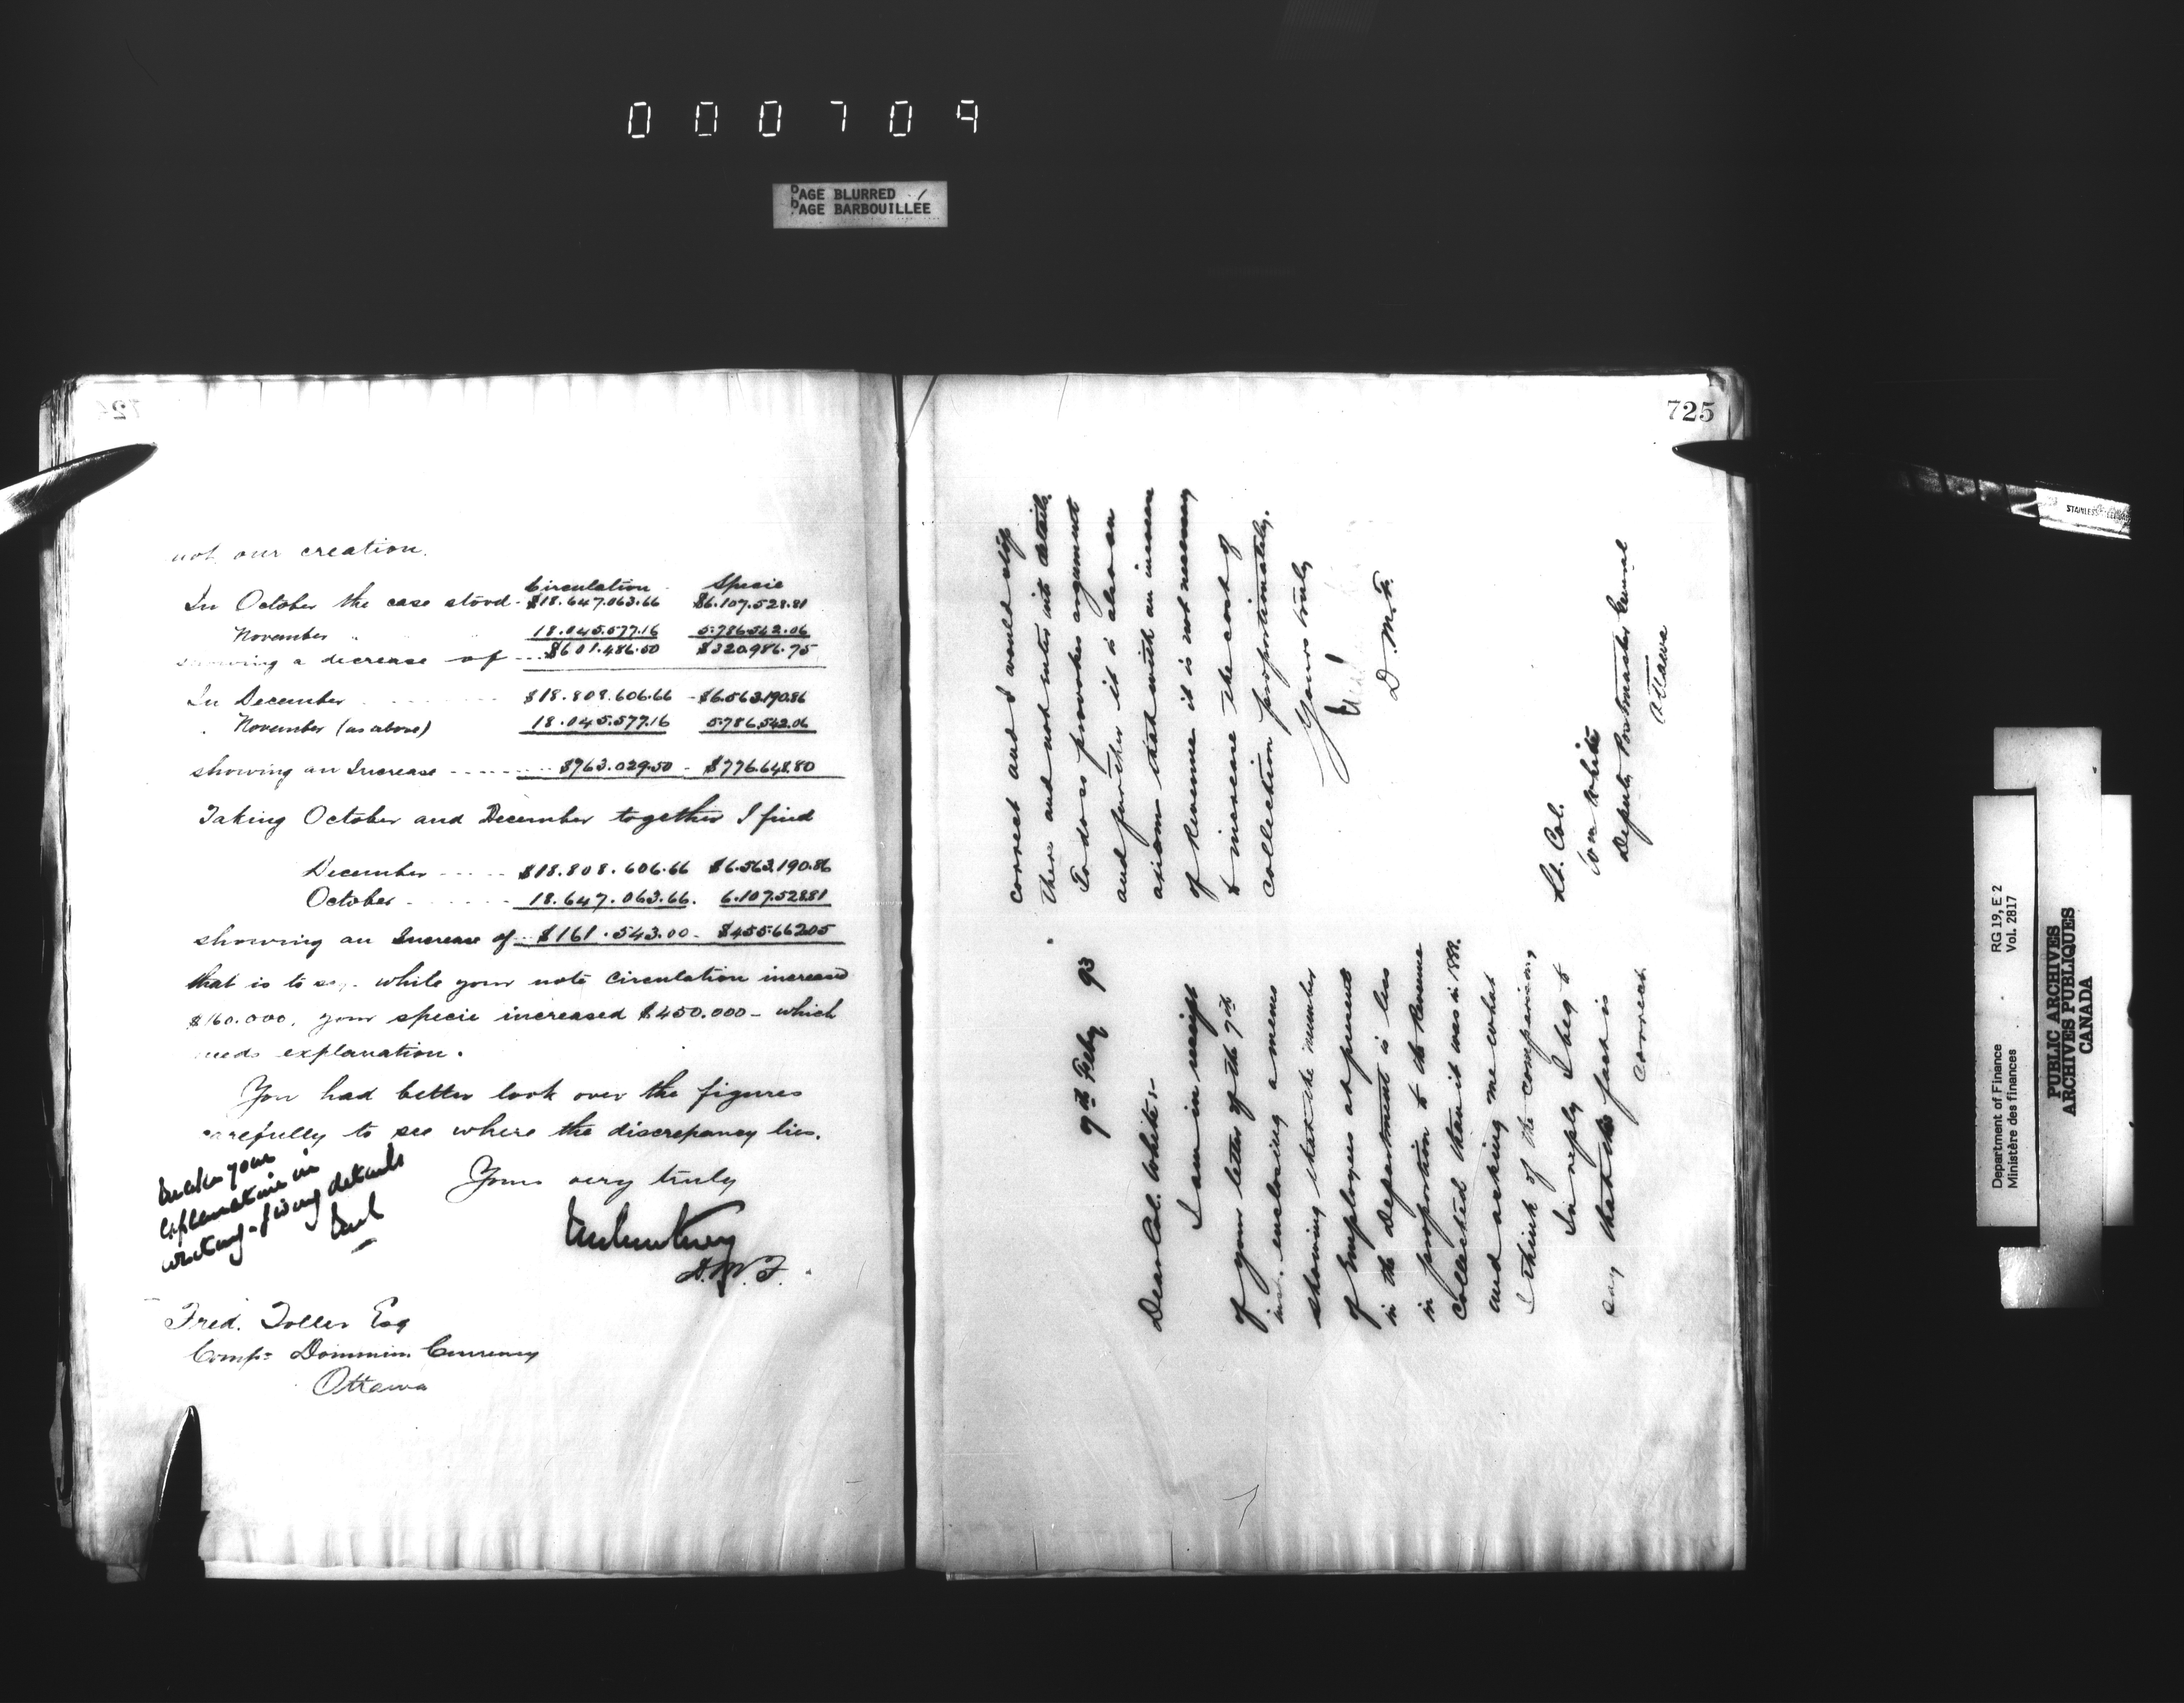 000709
PAGE BLURRED
PAGE BARBOUILLÉE
724
not our creation.
Circulation Specie
In October the case stood - $18.647.063.66 $6.107.528.81
November " " 18.045.577.16 5.786.542.06
showing a decrease of - - - $601.486.50 $320.986.75
In December - - - - - $18.808.606.66 - $6.563.190.86
November (as above) 18.045.577.16 5.786.542.06
showing an Increase - - - - - - $763.029.50 - $776.648.80
Taking October and December together I find
December - - - - - $18.808.606.66 $6.563.190.86
October - - - - - - 18.647.063.66. 6.107.528.81
showing an Increase of - $161.543.00 - $455.662.05
that is to say - while your note circulation increased
$160.000, your specie increased $450.000 - which
needs explanation.
You had better look over the figures
carefully to see where the discrepancy lies.
Make your
explanation in
writing - giving details
Yours very truly
D.M.F.
Fred. Toller Esq
Comp: Dominion Currency
Ottawa
725
9th Feby 93
Dear Col. White:-
I am in receipt
of your letter of the 7th
inst. enclosing a memo
showing that the number
of Employees at present
in the Department is less
in proportion to the Revenue
Collected than it was in 188
and asking me what
I think of the comparison,
In reply I beg to
say that the fact is
correct
correct and I would stop
there and not enter into details.
To do so provokes argument
and further it is also an
axiom that with an increase
of Revenue it is not necessary
to increase the cost of
collection proportionately.
Yours truly
D.M.F.
Lt. Col.
Wm White
Deputy Postmaster General
Ottawa
STAINLESS
Department of Finance
Ministère des finances
RG 19, E 2
Vol. 2817
PUBLIC ARCHIVES
ARCHIVES PUBLIQUES
CANADA